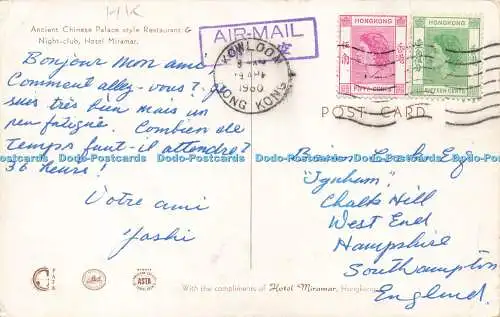 HK
Ancient Chinese Palace style Restaurant &
Night-club, Hotel Miramar.
AIR-MAIL
KOWLOON
1960
HONG KONG
HONGKONG
FIFTY CENTS
HONGKONG
FIFTEEN CENTS
POST CARD
Bonjour mon ami
Comment allez-vous? Je
suis très bien mais un
peu fatigué. Combien de
temps faut-il attendre?
36 heures!
Votre ami
Yoshi
Brian Esq.
"Ignham"
Chalk Hill
West End
Hampshire
Southampton
England.
Dodo-Postcards Dodo-Postcards Dodo-Postcards Dodo-Postcards Dodo-Postcards
ASTA
With the compliments of Hotel Miramar, Hongkong